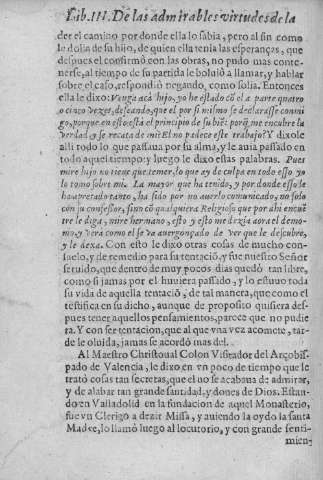 Lib. III. De las admirables virtudes de la
der el camino por donde ella lo sabia, pero al fin como
le dolia de su hijo, de quien ella tenia las esperanças, que
despues el confirmò con las obras, no pudo mas conte-
nerse, al tiempo de su partida le boluiò a llamar, y hablar
sobre el caso, respondiò negando, como solia. Entonces
ella le dixo: Venga acà hijo, yo he estado cõ el a parte quatro
o cinco vezes, desseando, que el por si mismo se declarasse conmi
go, porque en esto està el principio de su biẽ: porq̃ me encubre la
verdad, y se recata de mi? El no padece este trabajo? Y dixole
alli todo lo que passaua por su alma, y le auia passado en
todo aquel tiempo: y luego le dixo estas palabras. Pues
mire hijo no tiene que temer, lo que ay de culpa en todo esso yo
lo tomo sobre mi. La mayor que ha tenido, y por donde esso le
ha apretado tanto, ha sido por no auerlo comunicado, no solo
con su confessor, sino cõ qualquiera Religioso que por ahi encuẽ
tre le diga, mire hermano, esto, y esto me dezia aora el demo-
nio, y verà como el se va auergonçado de ver que le descubre,
y le dexa. Con esto le dixo otras cosas de mucho con-
suelo, y de remedio para su tentaciõ, y fue nuestro Señor
seruido, que dentro de muy pocos dias quedò tan libre,
como si jamas por el huuiera passado, y lo estuuo toda
su vida de aquella tentaciõ, de tal manera, que como el
testifica en su dicho, aunque de proposito quisiera des-
pues tener aquellos pensamientos, parece que no pudie
ra. Y con ser tentacion, que al que vna vez acomete, tar-
de le oluida, jamas se acordò mas del.
Al Maestro Christoual Colon Visitador del Arçobis-
pado de Valencia, le dixo en vn poco de tiempo que le
tratò cosas tan secretas, que el no se acabaua de admirar,
y de alabar tan grande santidad, y dones de Dios. Estan-
do en Valladolid en la fundacion de aquel Monasterio,
fue vn Clerigo a dezir Missa, y auiendola oydo la santa
Madre, lo llamò luego al locutorio, y con grande senti-
mien-